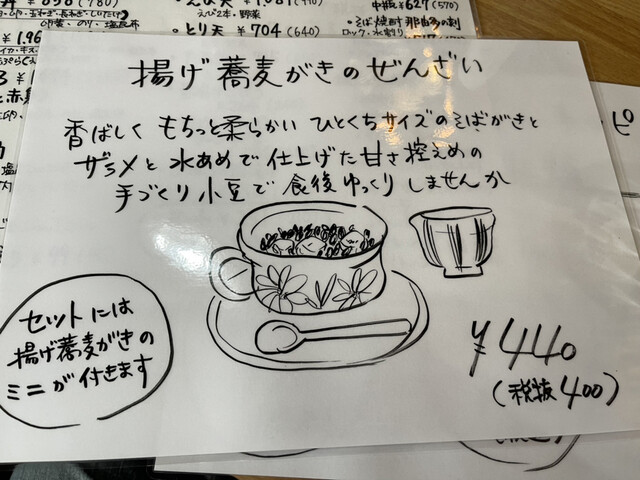 ¥858(780)
えび天 ¥1.081
えび2本・野菜
・とり天 ¥704(640)
中瓶 ¥627(570)
・そば焼酎 那由多の刻
ロック・水割り
揚げ蕎麦がきのぜんざい
香ばしく もちっと柔らかい ひとくちサイズのそばがきと
ザラメと水あめで仕上げた甘さ控えめの
手づくり小豆で 食後ゆっくりしませんか
セットには
揚げ蕎麦がきの
ミニが付きます
¥440
(税抜400)